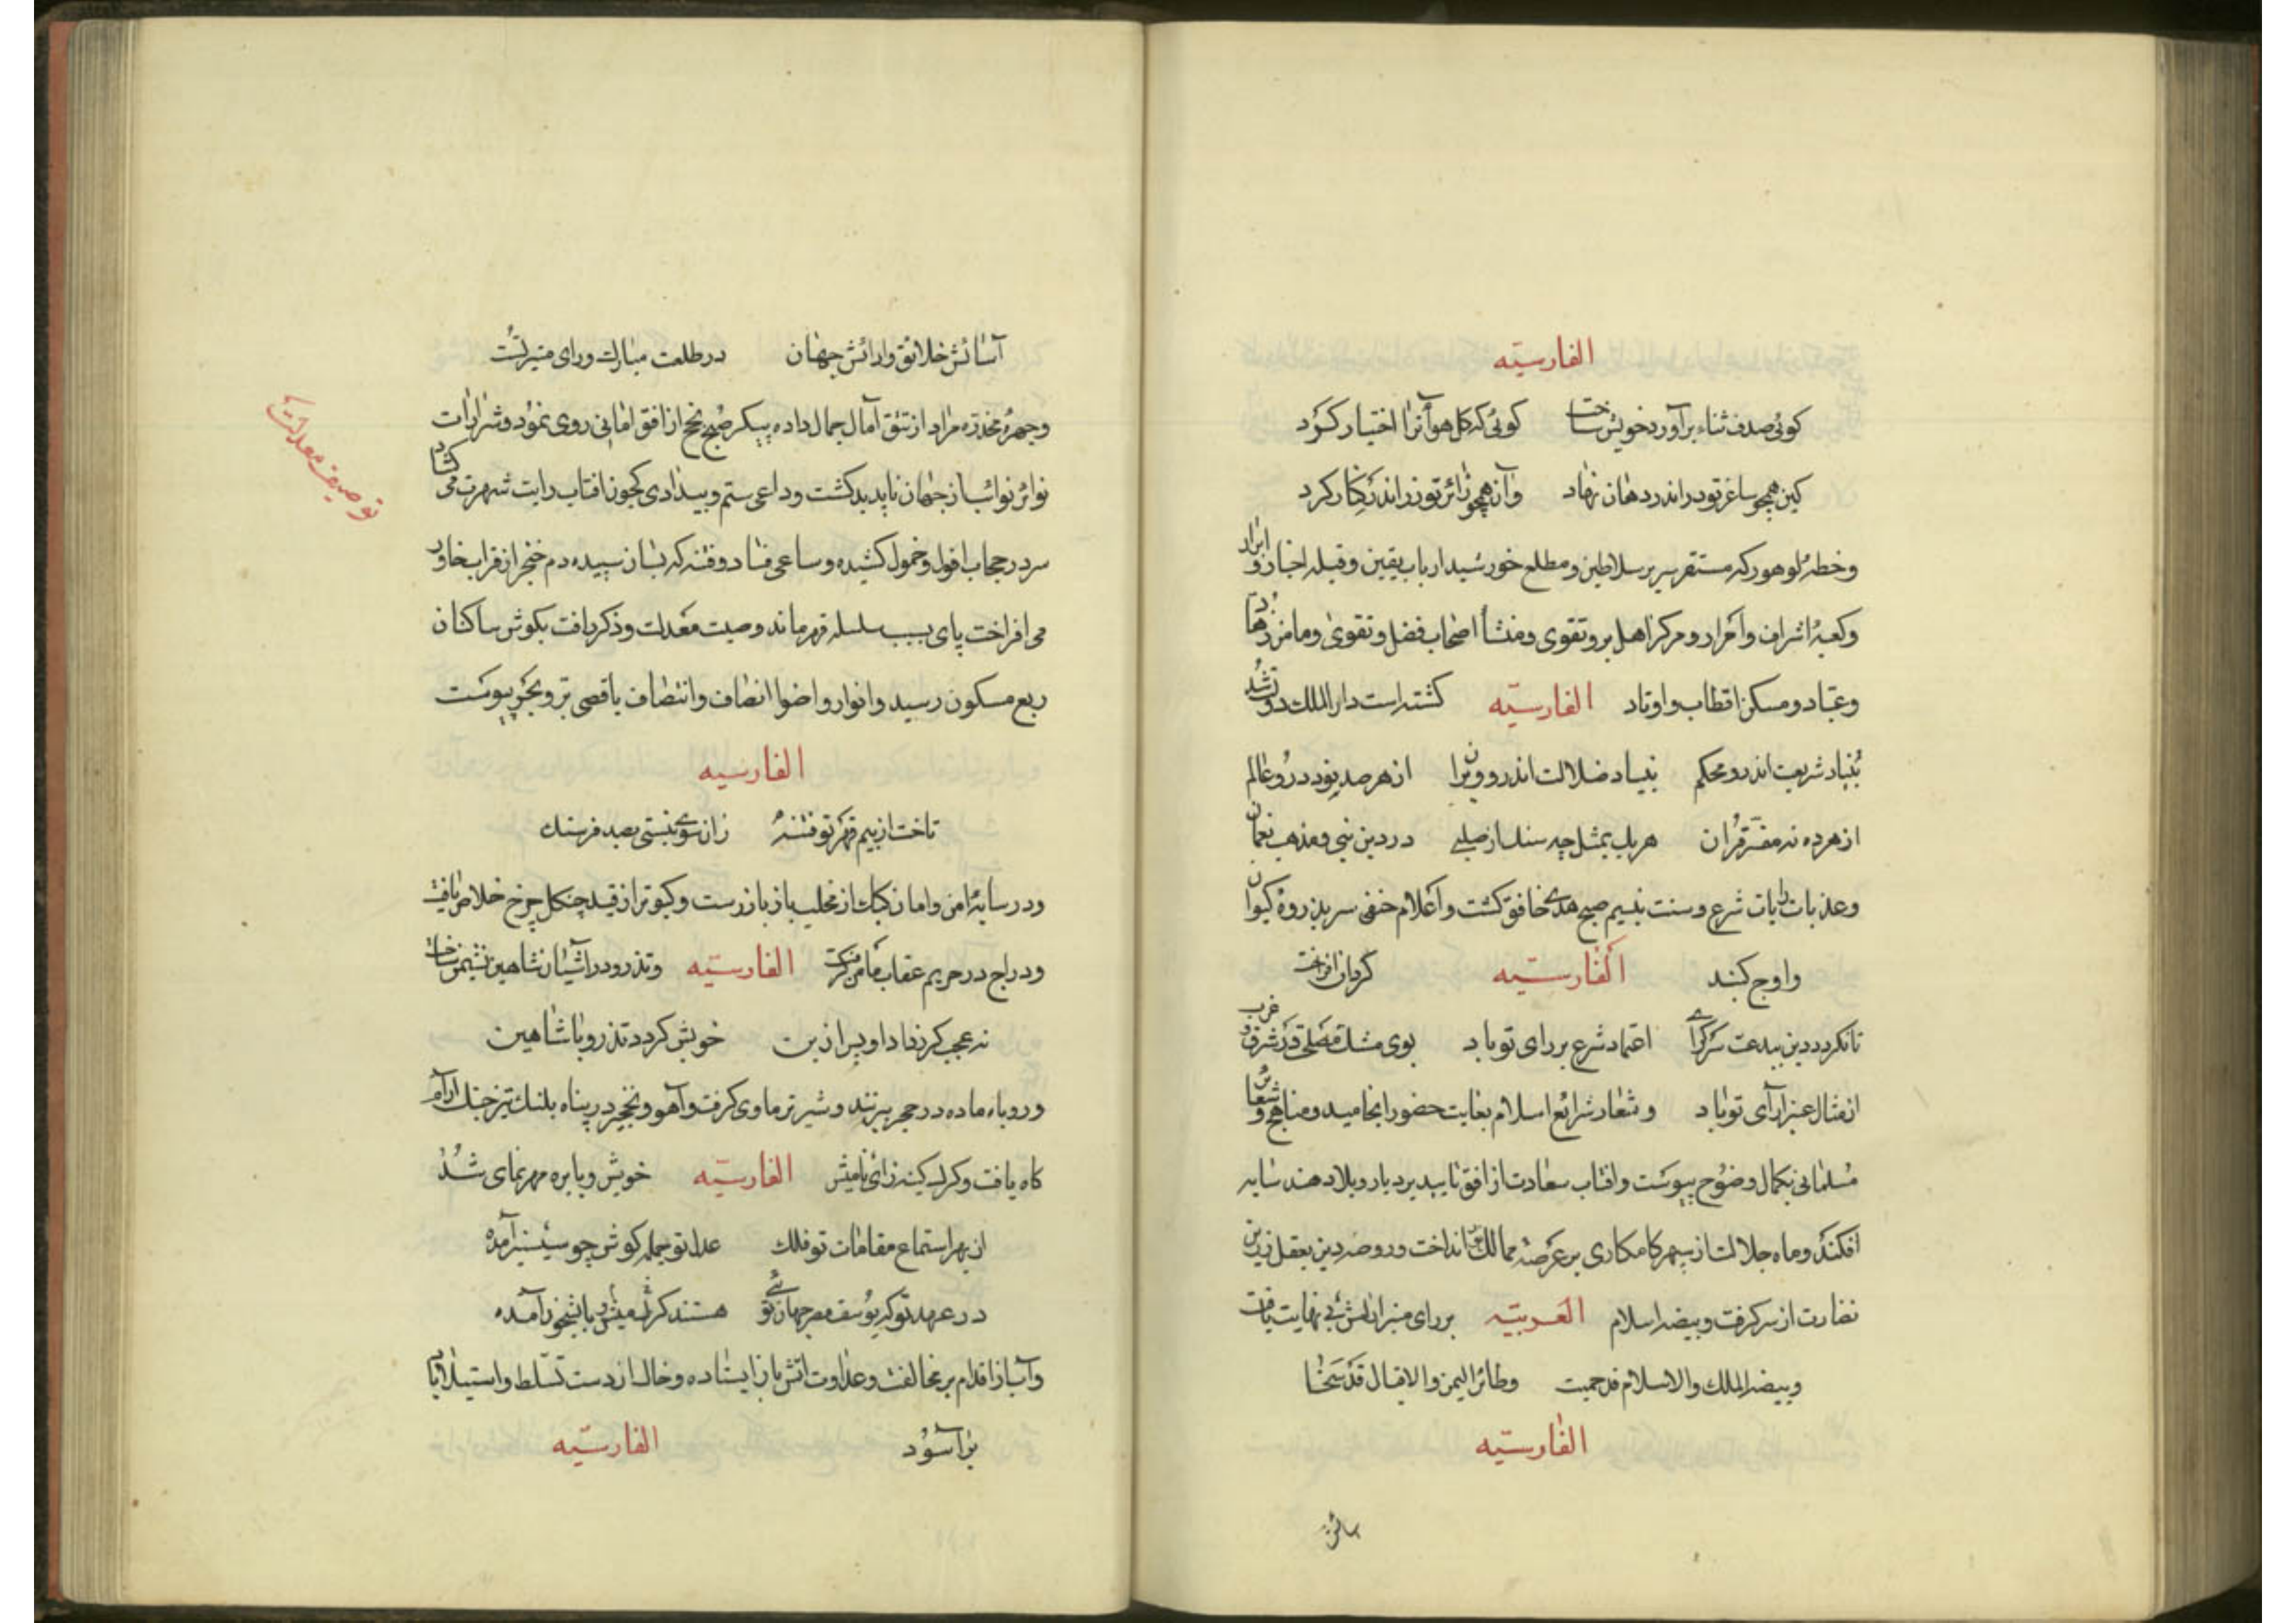 الفارسیّه
کوئی صدف ثناء برآورد خویش ساخت کوئی که کل هوآ ترا اختیار کرد
کین همچو ساغر تو در اندر دهان نهاد وآن همچو زائر تو زر اندر کنار کرد
وخطهٔ لوهور که مستقر سریر سلاطین ومطلع خورشید ارباب یقین وقبله اخیار و ابرار
وکعبهٔ اشراف واحرار ومرکز اهل بر وتقوی ومنشأ اصحاب فضل وتقوی ومامن زهاد
وعبّاد ومسکن اقطاب واوتاد الفارسیّه کشته است دار الملک دو
بنیاد شریعت اندرو محکم بنیاد ضلالت اندرو ویران از هر صد بود درو عالم
از هر ده نه مفسّر قرآن هر یک بمثل چه سد از صلبی در دین نبی ومذهب نعمان
وعذبات رایات شرع وسنت بنسیم صبح هدی خافق کشت واعلام حنفی سر بذروهٔ کیوان
واوج کنبد الفارسیّه کردان افراخت
تا نکردد دین ببدعت سرکرای اعتماد شرع بر رای تو باد بوی مشک مصلی در شرق و غرب
از مثال عنبر آرای تو باد وشعار شرائع اسلام بغایت حضور انجامید ومناهج و شعائر
مسلمانی بکمال وضوح پیوست وافتاب سعادت از افق تایید بر دیار وبلاد هند سایه
افکند وماه جلالت از سپهر کامکاری بر عرصهٔ ممالک انداخت وروضه دین بعقل زرین
نضارت از سر کرفت وبیضه اسلام العربیّه بر رای منیرانش بی نهایت یافت
وبیضه الملک والاسلام قد حمیت وطائر الیمن والاقبال قد سنحا
الفارسیّه
آسائش خلائق وارائش جهان در طلعت مبارک ورای منیر تست
وچهرهٔ مخدّره مراد از تتق آمال جمال داده پیکر صبح نجح از افق امانی روی نمود وشرارات
نوائر نوائب از جهان ناپدید کشت وداعی ستم وبیدادی کچون افتاب رایت شهرت می کشاد
سر در حجاب افول وخمول کشیده وساعی فساد وفتنه که بسان سپیده دم خنجر از قراب خاور
می افراخت پای بسبب سلسله قهر ماند وصیت معدلت وذکر رافت بکوش ساکنان
ربع مسکون رسید وانوار واضوا انصاف وانتصاف باقصی بر وبحر پیوست
توصیف معدلت
الفارسیه
تاخت از بیم قهر تو فتنهٔ زان سوی نیستی بصد فرسنک
ودر سایهٔ امن وامان کبک از مخلب باز باز رست وکبوتر از قید چنکل چرخ خلاص یافت
ودراج در حریم عقاب مامن کرفت الفارسیّه وتذرو در اشیان شاهین نشیمن ساخت
نه عجب کر زداد او پس ازین خویش کردد تذرو با شاهین
وروباه ماده در حجر ببر تند وشیر نر ماوی کرفت وآهو ونخجیر در پناه پلنک تیز چنک آرام
کاه یافت وکرک کینه زای با میش الفارسیّه خویش وبا بره مهر نمای شد
از بهر استماع مقامات تو فلک عدل تو جمله کوش چو آمده
در عهد تو که یوسف مصر جهان توئی هستند کرک ومیش بابشخور آمده
وآب از اقدام بر مخالفت وعداوت اتش باز ایستاده وخاک از دست تسلط واستیلا باد
برآسود الفارسیّه